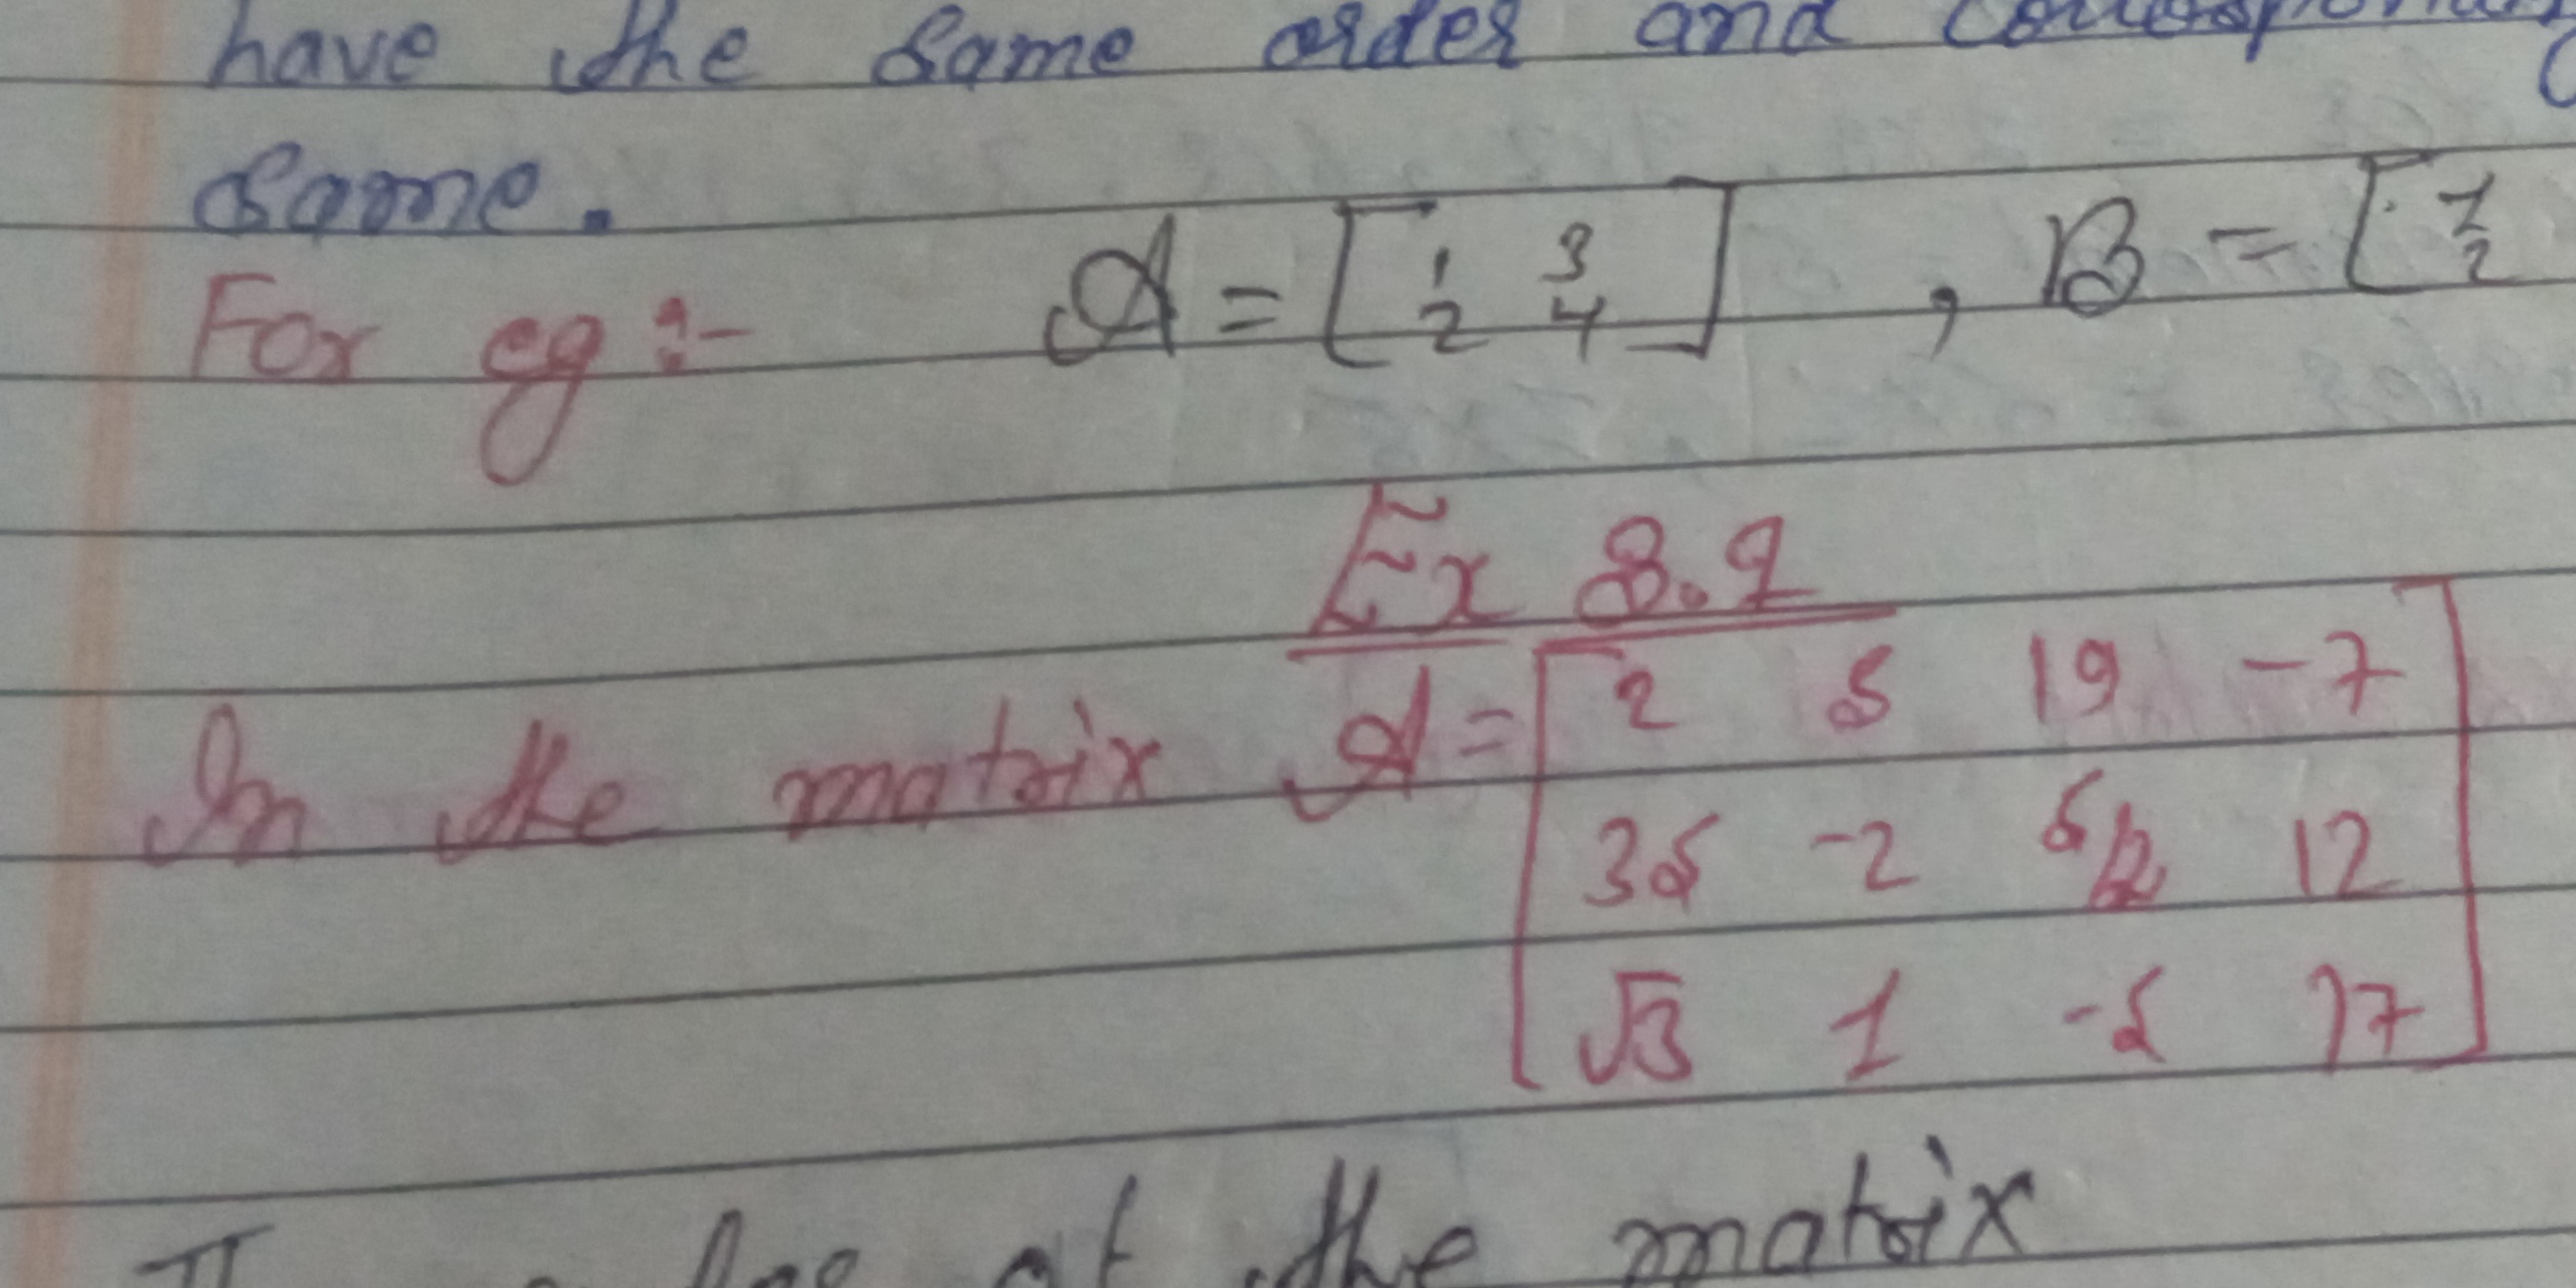 have the same order and
same.
For eg :- A = [1 3 , B = [1
2 4] 2
Ex 3.1
In the matrix A = [2 5 19 -7
35 -2 5/2 12
√3 1 -5 17]
of the matrix